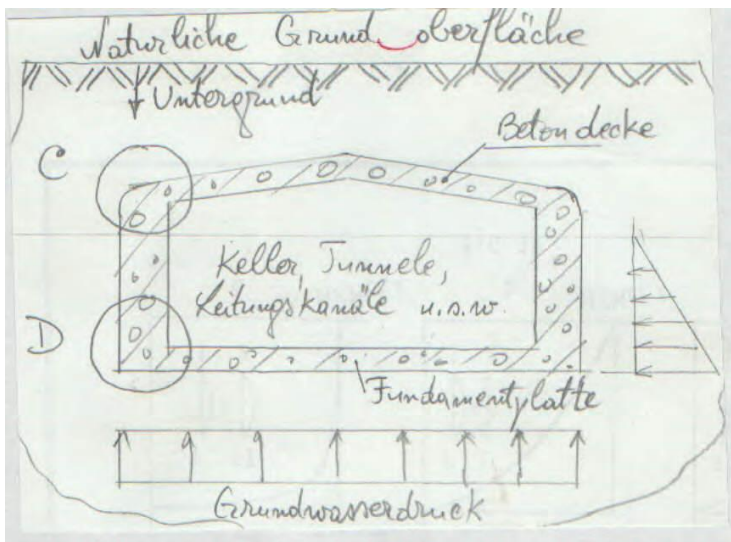 Naturliche Grund oberfläche
Untergrund
Betondecke
C
Keller, Tunnele,
Leitungskanäle u.s.w.
D
Fundamentplatte
Grundwasserdruck